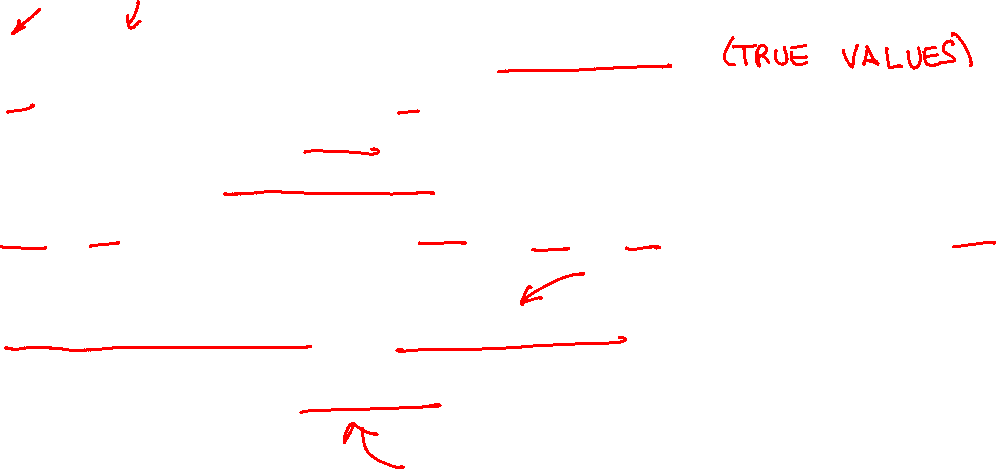 (TRUE VALUES)